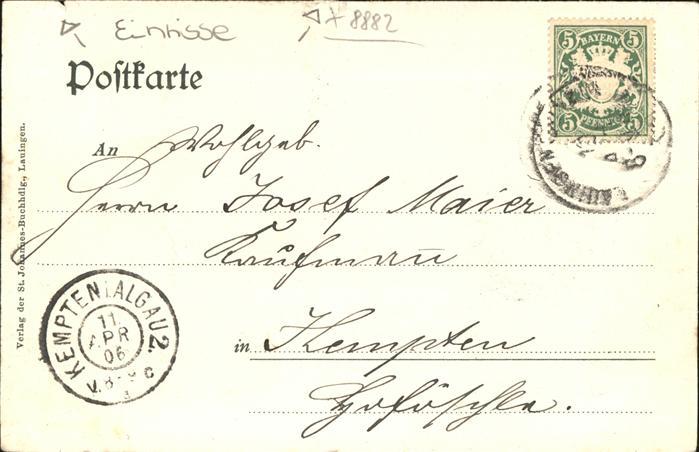 Einrisse
* 8882
Postkarte
5 BAYERN 5
5 PFENNIG 5
An Wohlgeb.
Herrn Josef Maier
Kaufmann
in Kempten
Verlag der St. Johannes-Buchhdlg., Lauingen.
KEMPTEN ALGAU 2.
11
APR
06